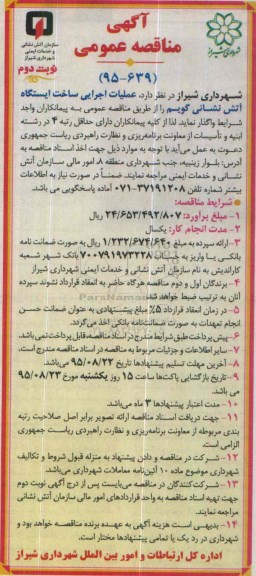 آگهی
مناقصه عمومی
(۹۵-۶۳۹)
شهرداری شیراز
سازمان آتش نشانی
و خدمات ایمنی
شهرداری شیراز
نوبت دوم
شهرداری شیراز در نظر دارد، عملیات اجرایی ساخت ایستگاه
آتش نشانی گویم را از طریق مناقصه عمومی به پیمانکاران واجد
شرایط واگذار نماید. لذا از کلیه پیمانکاران دارای حداقل رتبه ۴ در رشته
ابنیه و تأسیسات از معاونت برنامه‌ریزی و نظارت راهبردی ریاست جمهوری
دعوت به عمل می‌آید با توجه به موارد ذیل جهت اخذ اسناد مناقصه به
آدرس: بلوار زینبیه، جنب شهرداری منطقه ۸، امور مالی سازمان آتش
نشانی و خدمات ایمنی مراجعه نمایند. ضمناً در صورت نیاز به اطلاعات
بیشتر شماره تلفن ۳۷۱۹۱۲۰۸-۰۷۱ آماده پاسخگویی می باشد.
شرایط مناقصه:
۱- مبلغ برآورد: ۲۴/۶۵۳/۴۹۲/۸۰۷ ریال
۲- مدت انجام کار: یکسال
۳- ارائه سپرده به مبلغ ۱/۲۳۲/۶۷۴/۶۴۰ ریال به صورت ضمانت نامه
بانکی یا واریز به حساب ۷۰۰۷۹۱۹۷۳۲۲۸ بانک شهر شعبه
کاراندیش به نام سازمان آتش نشانی و خدمات ایمنی شهرداری شیراز
۴- برندگان اول و دوم مناقصه هرگاه حاضر به انعقاد قرارداد نشوند سپرده
آنان به ترتیب ضبط خواهد شد.
۵- در زمان انعقاد قرارداد ۵٪ مبلغ پیشنهادی به عنوان ضمانت حسن
انجام تعهدات به صورت ضمانت‌نامه بانکی اخذ می‌گردد.
۶- پیش پرداخت طبق شرایط مندرج در اسناد مناقصه، قابل پرداخت نمی باشد.
۷- سایر اطلاعات و جزئیات مربوط به مناقصه در اسناد مناقصه مندرج است.
۸- آخرین مهلت تسلیم پیشنهادها تاریخ ۹۵/۰۸/۲۲ می باشد.
۹- تاریخ بازگشایی پاکت‌ها ساعت ۱۵ روز یکشنبه مورخ ۹۵/۰۸/۲۳
می باشد.
۱۰- مدت اعتبار پیشنهادها ۳ ماه می‌باشد.
۱۱- جهت دریافت اسناد مناقصه ارائه تصویر برابر اصل صلاحیت رتبه
بندی مربوطه از معاونت برنامه‌ریزی و نظارت راهبردی ریاست جمهوری
الزامی است.
۱۲- شرکت در مناقصه و دادن پیشنهاد به منزله قبول شروط و تکالیف
شهرداری موضوع ماده ۱۰ آئین‌نامه معاملات شهرداری می‌باشد.
۱۳- شرکت‌کنندگان در مناقصه می‌بایست پس از درج آگهی نوبت دوم
جهت تهیه اسناد مناقصه به واحد قراردادهای امور مالی سازمان آتش نشانی
مراجعه نمایند.
۱۴- بدیهی است هزینه آگهی به عهده برنده مناقصه خواهد بود و
شهرداری در رد یک یا تمامی پیشنهادها مختار است.
اداره کل ارتباطات و امور بین الملل شهرداری شیراز